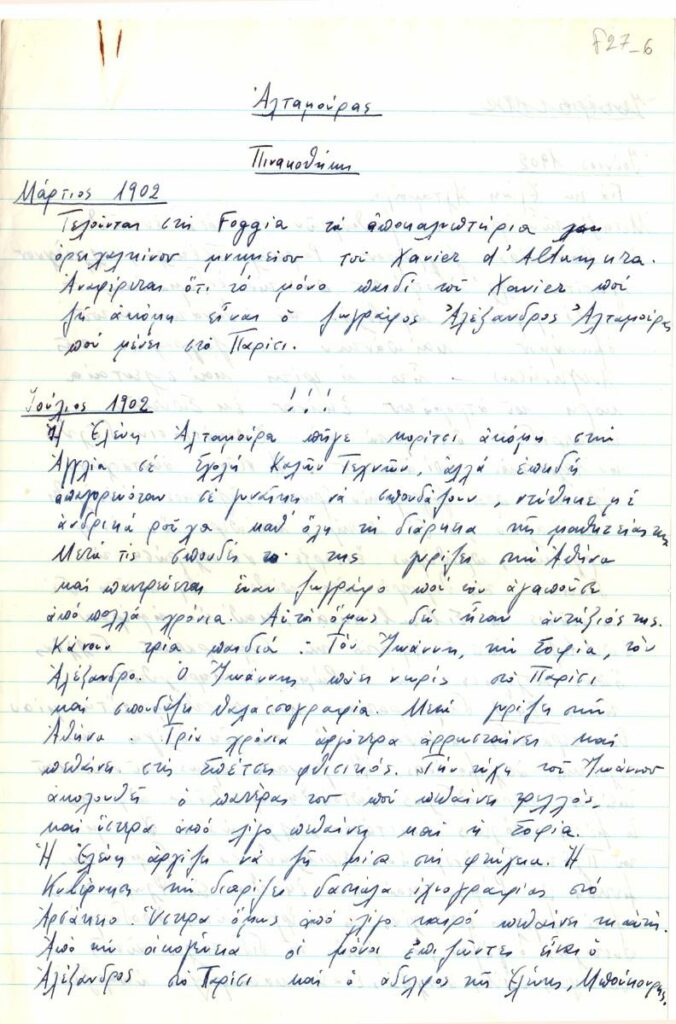 f27_6
Ἀλταμούρας
Πινακοθήκη
Μάρτιος 1902
Τελοῦνται στή Foggia τά ἀποκαλυπτήρια
ὀρειχαλκίνου μνημείου τοῦ Xavier d'Altamura.
Ἀναφέρεται ὅτι τό μόνο παιδί τοῦ Xavier πού
ζῆ ἀκόμη εἶναι ὁ ζωγράφος Ἀλέξανδρος Ἀλταμούρας
πού μένει στό Παρίσι.
Ἰούλιος 1902 !!!
Ἡ Ἑλένη Ἀλταμούρα πῆγε κορίτσι ἀκόμη στήν
Ἀγγλία σέ Σχολή Καλῶν Τεχνῶν, ἀλλά ἐπειδή
ἀπαγορευόταν σέ γυναῖκες νά σπουδάζουν, ντύθηκε μέ
ἀνδρικά ροῦχα καθ' ὅλη τή διάρκεια τῆς μαθητείας της
Μετά τίς σπουδές της γυρίζει στήν Ἀθήνα
καί παντρεύεται ἕναν ζωγράφο πού τόν ἀγαποῦσε
ἀπό πολλά χρόνια. Αὐτός ὅμως δέν ἦταν ἀντάξιός της.
Κάνουν τρια παιδιά: Τόν Ἰωάννη, τήν Σοφία, τόν
Ἀλέξανδρο. Ὁ Ἰωάννης πάει νωρίς στό Παρίσι
καί σπουδάζει θαλασσογραφία. Μετά γυρίζει στήν
Ἀθήνα. Τρία χρόνια ἀργότερα ἀρρωσταίνει καί
πεθαίνει στίς Σπέτσες φθισικός. Τήν τύχη τοῦ Ἰωάννου
ἀκολουθεῖ ὁ πατέρας του πού πεθαίνει τρελλός,
καί ὕστερα ἀπό λίγο πεθαίνει καί ἡ Σοφία.
Ἡ Ἑλένη ἀρχίζει νά ζῆ μέσα στή φτώχεια. Ἡ
Κυβέρνηση τήν διορίζει δασκάλα ἰχνογραφίας στό
Ἀρσάκειο. Ὕστερα ὅμως ἀπό λίγο καιρό πεθαίνει κι αὐτή.
Ἀπό τήν οἰκογένεια οἱ μόνοι ἐπιζῶντες εἶναι ὁ
Ἀλέξανδρος στό Παρίσι καί ὁ ἀδελφός τῆς Ἑλένης, Μπούκουρης.